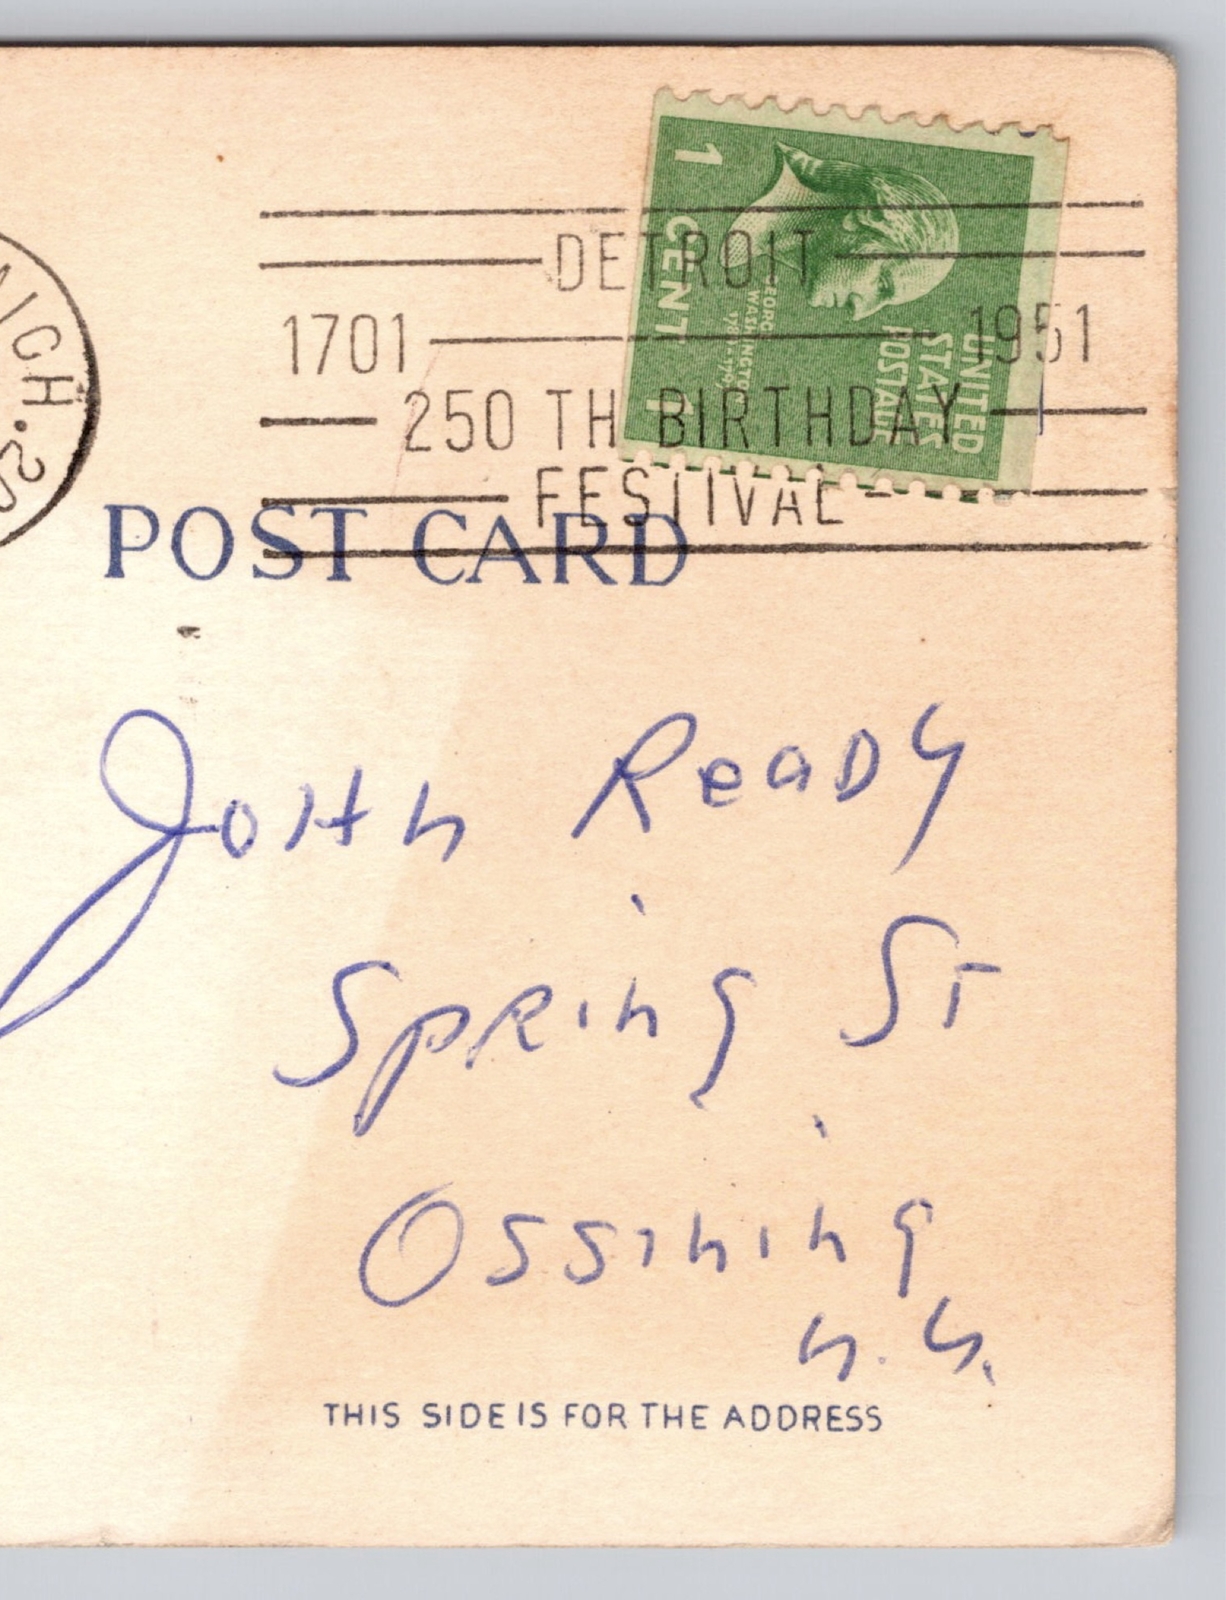 MICH. 20
DETROIT
1701 1951
250 TH BIRTHDAY
FESTIVAL
1 CENT 1
GEORGE
WASHINGTON
UNITED
STATES
POSTAGE
POST CARD
John Ready
Spring St
Ossining
N.Y.
THIS SIDE IS FOR THE ADDRESS